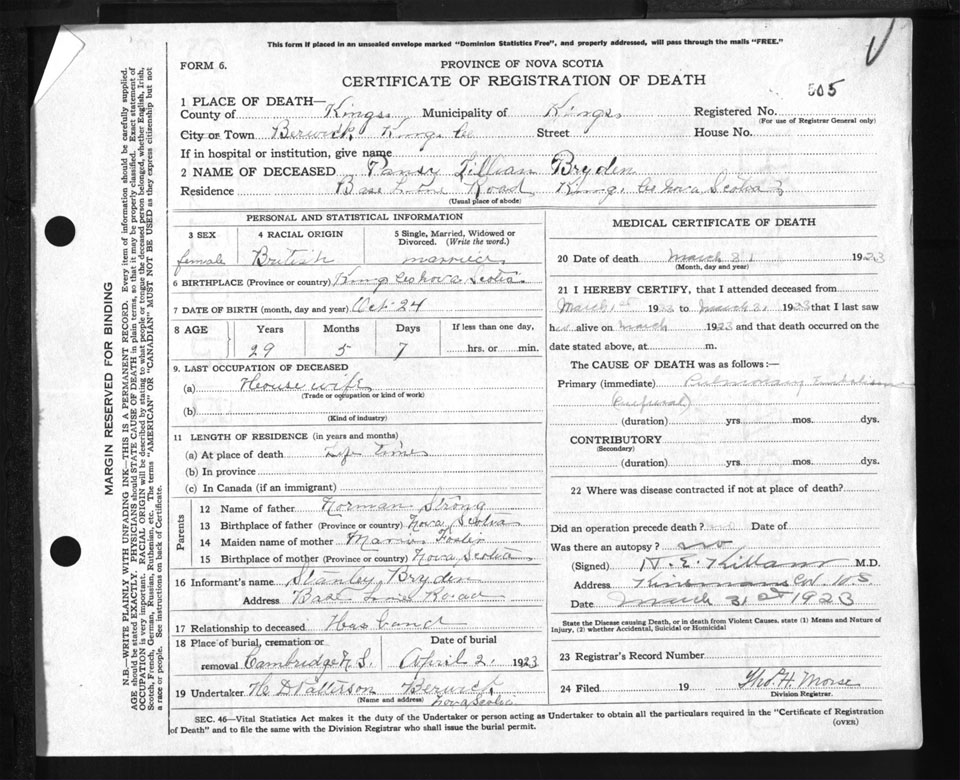 This form if placed in an unsealed envelope marked "Dominion Statistics Free", and properly addressed, will pass through the mails "FREE."
FORM 6.
PROVINCE OF NOVA SCOTIA
CERTIFICATE OF REGISTRATION OF DEATH
505
1 PLACE OF DEATH—
County of Kings Municipality of Kings Registered No.
(For use of Registrar General only)
City or Town Berwick Kings Co Street House No.
If in hospital or institution, give name
2 NAME OF DECEASED Pansy Lillian Bryden
Residence Base Line Road Kings Co Nova Scotia
(Usual place of abode)
PERSONAL AND STATISTICAL INFORMATION
3 SEX 4 RACIAL ORIGIN 5 Single, Married, Widowed or Divorced. (Write the word.)
female British married
6 BIRTHPLACE (Province or country) Kings Co Nova Scotia
7 DATE OF BIRTH (month, day and year) Oct 24
8 AGE Years Months Days If less than one day,
29 5 7 hrs. or min.
9. LAST OCCUPATION OF DECEASED
(a) House wife
(Trade or occupation or kind of work)
(b)
(Kind of industry)
11 LENGTH OF RESIDENCE (in years and months)
(a) At place of death Life time
(b) In province
(c) In Canada (if an immigrant)
Parents
12 Name of father Norman Strong
13 Birthplace of father (Province or country) Nova Scotia
14 Maiden name of mother Foster
15 Birthplace of mother (Province or country) Nova Scotia
16 Informant's name Stanley Bryden
Address Base Line Road
17 Relationship to deceased Husband
18 Place of burial, cremation or Date of burial
removal Cambridge N.S. April 2. 1923
19 Undertaker H. D Patterson Berwick
(Name and address) Nova Scotia
MEDICAL CERTIFICATE OF DEATH
20 Date of death March 31 1923
(Month, day and year)
21 I HEREBY CERTIFY, that I attended deceased from
March 1st 1923 to March 31 1923 that I last saw
her alive on March 1923 and that death occurred on the
date stated above, at m.
The CAUSE OF DEATH was as follows:—
Primary (immediate) Pulmonary Embolism
(Puerperal)
(duration) yrs. mos. dys.
CONTRIBUTORY
(Secondary)
(duration) yrs. mos. dys.
22 Where was disease contracted if not at place of death?
Did an operation precede death? no Date of
Was there an autopsy? no
(Signed) M.D.
Address
Date March 31st 1923
State the Disease causing Death, or in death from Violent Causes, state (1) Means and Nature of
Injury, (2) whether Accidental, Suicidal or Homicidal
23 Registrar's Record Number
24 Filed 19 Tho. H. Morse
Division Registrar.
SEC. 46—Vital Statistics Act makes it the duty of the Undertaker or person acting as Undertaker to obtain all the particulars required in the "Certificate of Registration
of Death" and to file the same with the Division Registrar who shall issue the burial permit.
(OVER)
MARGIN RESERVED FOR BINDING
N.B.—WRITE PLAINLY WITH UNFADING INK—THIS IS A PERMANENT RECORD. Every item of information should be carefully supplied.
AGE should be stated EXACTLY. PHYSICIANS should STATE CAUSE OF DEATH in plain terms, so that it may be properly classified. Exact statement of
OCCUPATION is very important. RACIAL ORIGIN will be described by stating to what people or tongue the deceased person belonged, whether English, Irish,
Scotch, French, German, Russian, Ruthenian, etc. The terms "AMERICAN" OR "CANADIAN" MUST NOT BE USED as they express citizenship but not
a race or people. See instructions on back of Certificate.